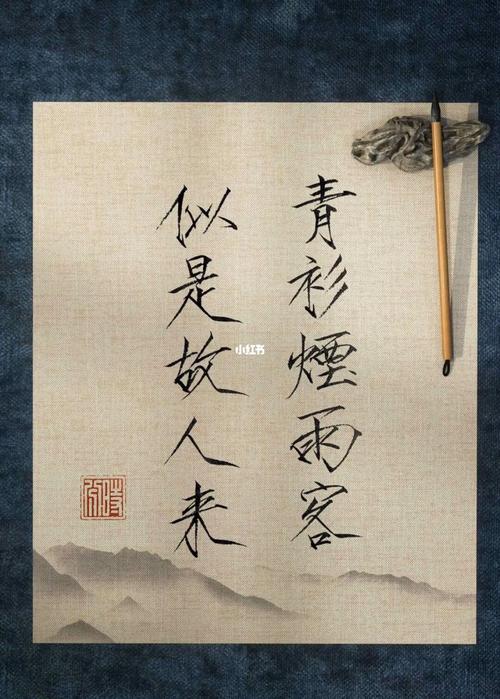 青衫煙雨客
似是故人来
小红书